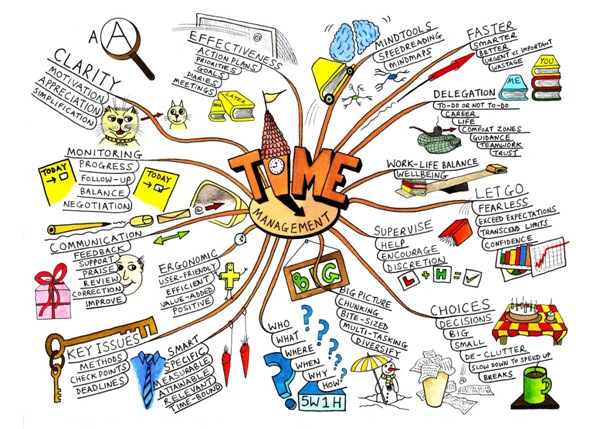 TIME
MANAGEMENT
A A
CLARITY
MOTIVATION
APPRECIATION
SIMPLIFICATION
EFFECTIVENESS
ACTION PLANS
PRIORITIES
GOALS
DIARIES
MEETINGS
NOW
LATER
MINDTOOLS
SPEEDREADING
MINDMAPS
FASTER
SMARTER
BETTER
URGENT vs IMPORTANT
WASTAGE
ME
YOU
DELEGATION
TO-DO OR NOT TO-DO
CAREER
LIFE
COMFORT ZONES
GUIDANCE
TEAMWORK
TRUST
WORK-LIFE BALANCE
WELLBEING
LET GO
FEARLESS
EXCEED EXPECTATIONS
TRANSCEND LIMITS
CONFIDENCE
SUPERVISE
HELP
ENCOURAGE
DISCRETION
L + H = ✓
CHOICES
DECISIONS
BIG
SMALL
DE-CLUTTER
SLOW DOWN TO SPEED UP
BREAKS
BIG
BIG PICTURE
CHUNKING
BITE-SIZED
MULTI-TASKING
DIVERSIFY
WHO
WHAT
WHERE
WHEN
WHY
HOW
5W1H
SMART
SPECIFIC
MEASURABLE
ATTAINABLE
RELEVANT
TIME-BOUND
ERGONOMIC
USER-FRIENDLY
EFFICIENT
VALUE-ADDED
POSITIVE
KEY ISSUES
METHODS
CHECK POINTS
DEADLINES
COMMUNICATION
FEEDBACK
SUPPORT
PRAISE
REVIEW
CORRECTION
IMPROVE
MONITORING
PROGRESS
FOLLOW-UP
BALANCE
NEGOTIATION
TODAY
TODAY
@